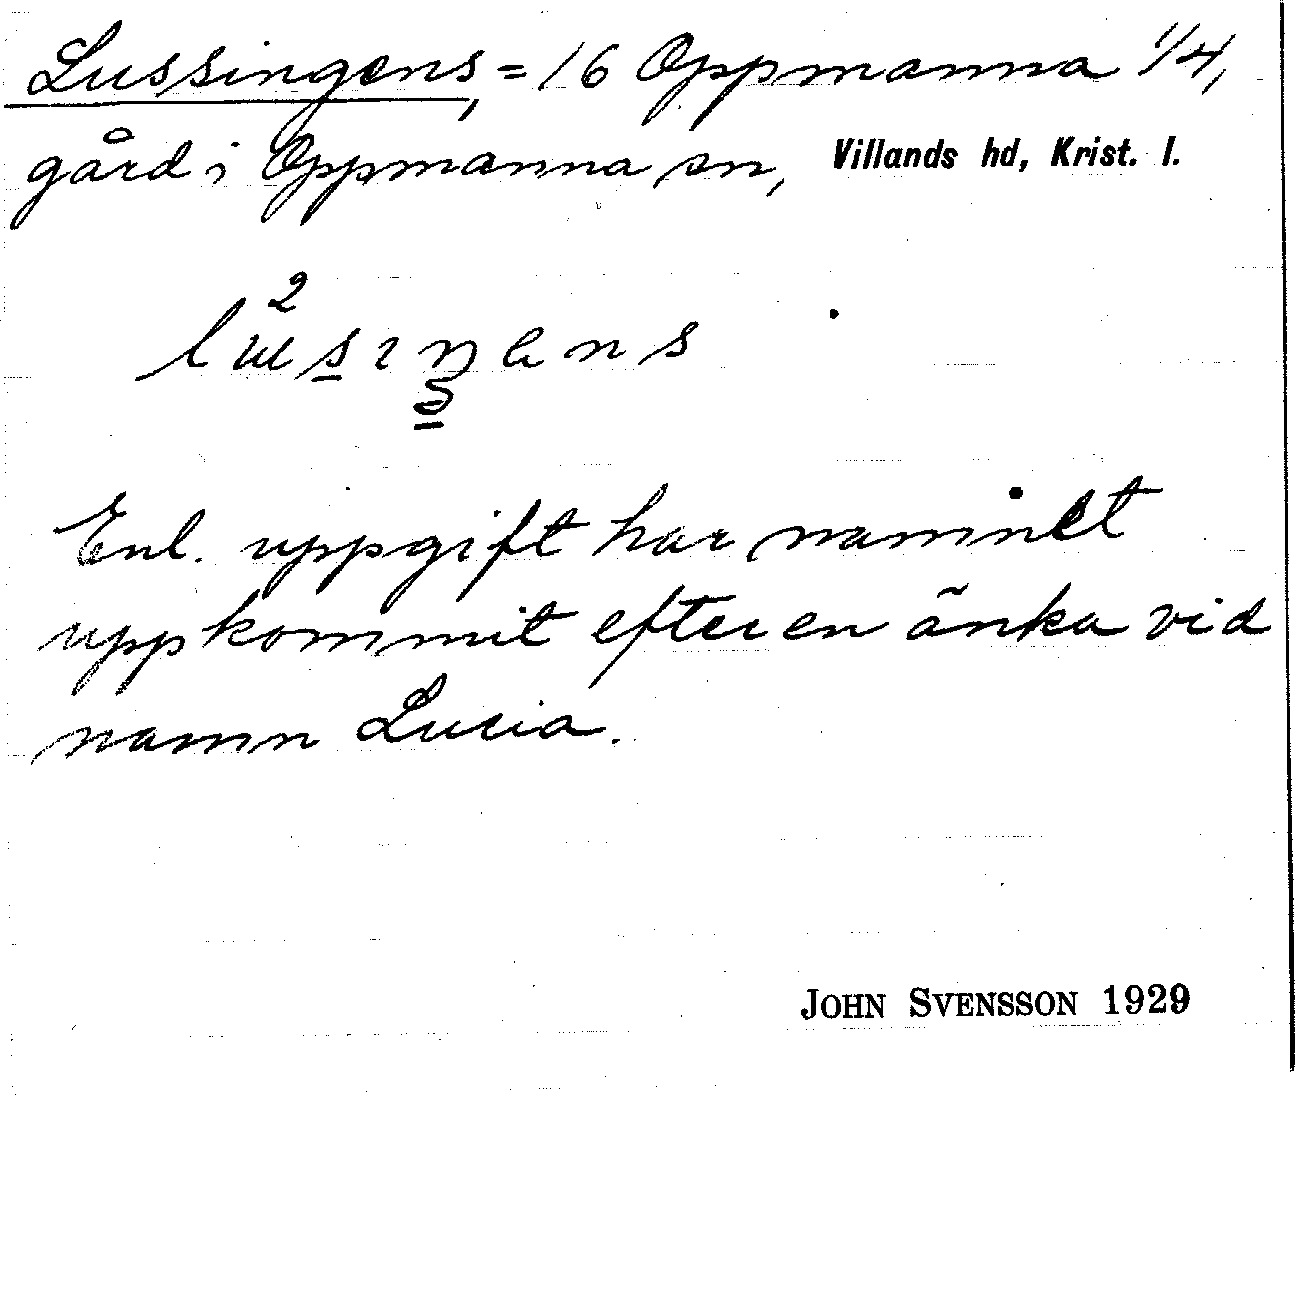 Lussingens, = 16 Oppmanna 1/4,
gård i Oppmanna sn, Villands hd, Krist. l.
Enl. uppgift har namnet
uppkommit efter en änka vid
namn Lucia.
JOHN SVENSSON 1929